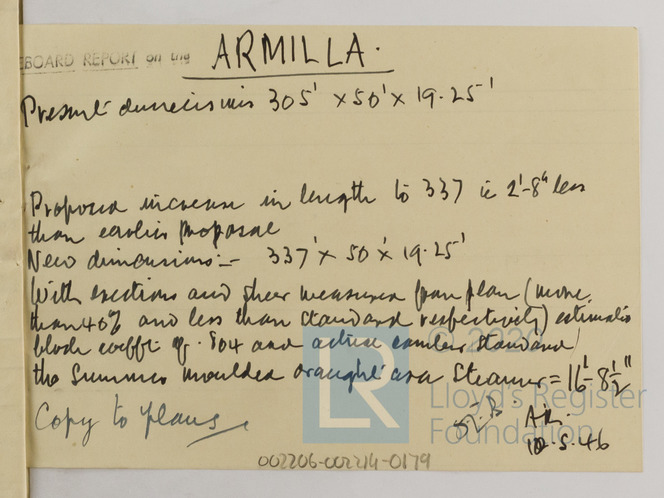 EBOARD REPORT on the ARMILLA.
Present dimensions 305' x 50' x 19.25'
Proposed increase in length to 337 ie 2'-8" less
than earlier proposal
New dimensions:- 337' x 50' x 19.25'
With erections and sheer measured from plan (more
than 40% and less than standard respectively) estimated
block coefft of .804 and actual camber standard
the Summer moulded draught as a Steamer = 16'-8½"
Copy to plans
12.5.46
© 20
Lloyd's Register
Foundation
LR
002206-002214-0179